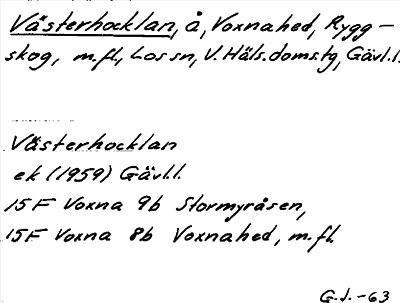 Västerhocklan, å, Voxnahed, Rygg-
skog, m.fl., Los sn, V. Häls. doms.tg, Gävl.l.
Västerhocklan
ek (1959) Gävl.l.
15F Voxna 9b Stormyråsen,
15F Voxna 8b Voxnahed, m.fl.
G.J. -63